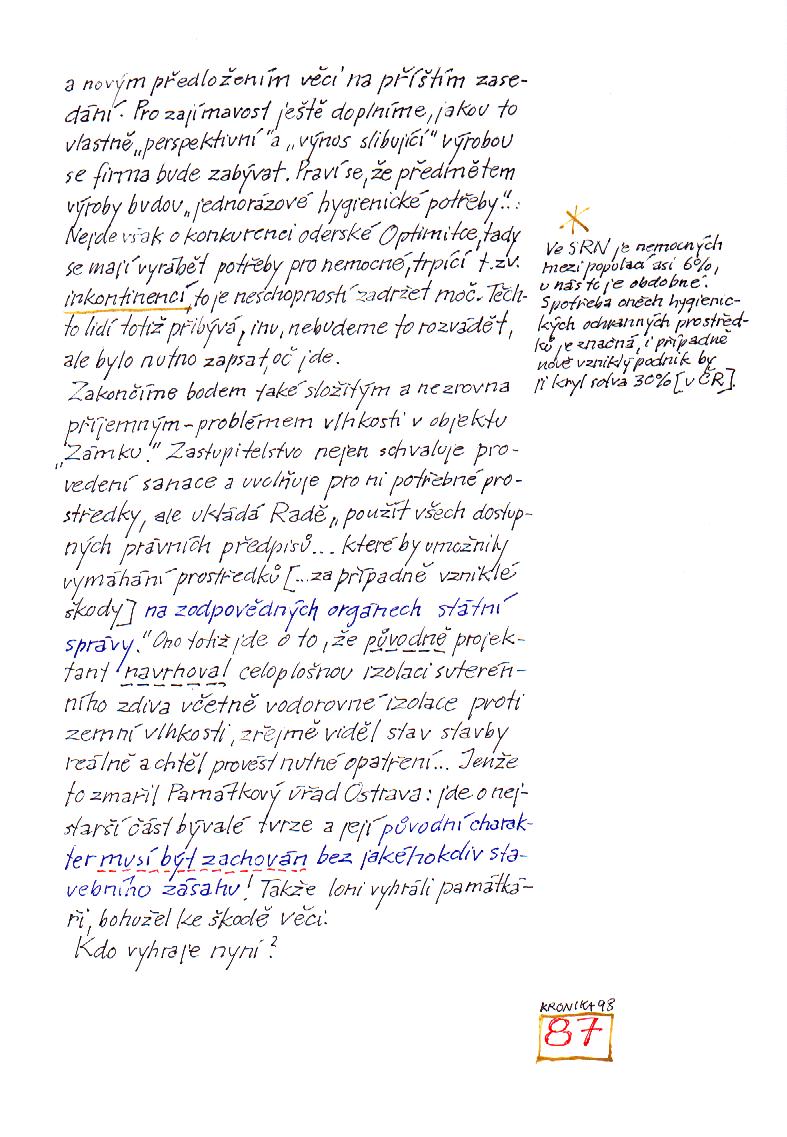 a novým předložením věci na příštím zase-
dání. Pro zajímavost ještě doplníme, jakou to
vlastně „perspektivní" a „výnos slibující" výrobou
se firma bude zabývat. Praví se, že předmětem
výroby budou „jednorázové hygienické potřeby"..
Nejde však o konkurenci oderské Optimitce, tady
se mají vyrábět potřeby pro nemocné, trpící t.zv.
inkontinencí, to je neschopností zadržet moč. Těch-
to lidí totiž přibývá, inu, nebudeme to rozvádět,
ale bylo nutno zapsat, oč jde.
Zakončíme bodem také složitým a nezrovna
příjemným – problémem vlhkosti v objektu
„Zámku". Zastupitelstvo nejen schvaluje pro-
vedení sanace a uvolňuje pro ni potřebné pro-
středky, ale ukládá Radě „použít všech dostup-
ných právních předpisů... které by umožnily
vymáhání prostředků [...za případně vzniklé
škody] na zodpovědných orgánech státní
správy." Ono totiž jde o to, že původně projek-
tant navrhoval celoplošnou izolaci suterén-
ního zdiva včetně vodorovné izolace proti
zemní vlhkosti, zřejmě viděl stav stavby
reálně a chtěl provést nutné opatření... Jenže
to zmařil Památkový úřad Ostrava: jde o nej-
starší část bývalé tvrze a její původní charak-
ter musí být zachován bez jakéhokoliv sta-
vebního zásahu! Takže loni vyhráli památká-
ři, bohužel ke škodě věci.
Kdo vyhraje nyní?
Ve SRN je nemocných
mezi populací asi 6%,
u nás to je obdobné.
Spotřeba oněch hygienic-
kých ochranných prostřed-
ků je značná, i případně
nově vzniklý podnik by
ji kryl solva 30% [v ČR].
KRONIKA 98
87